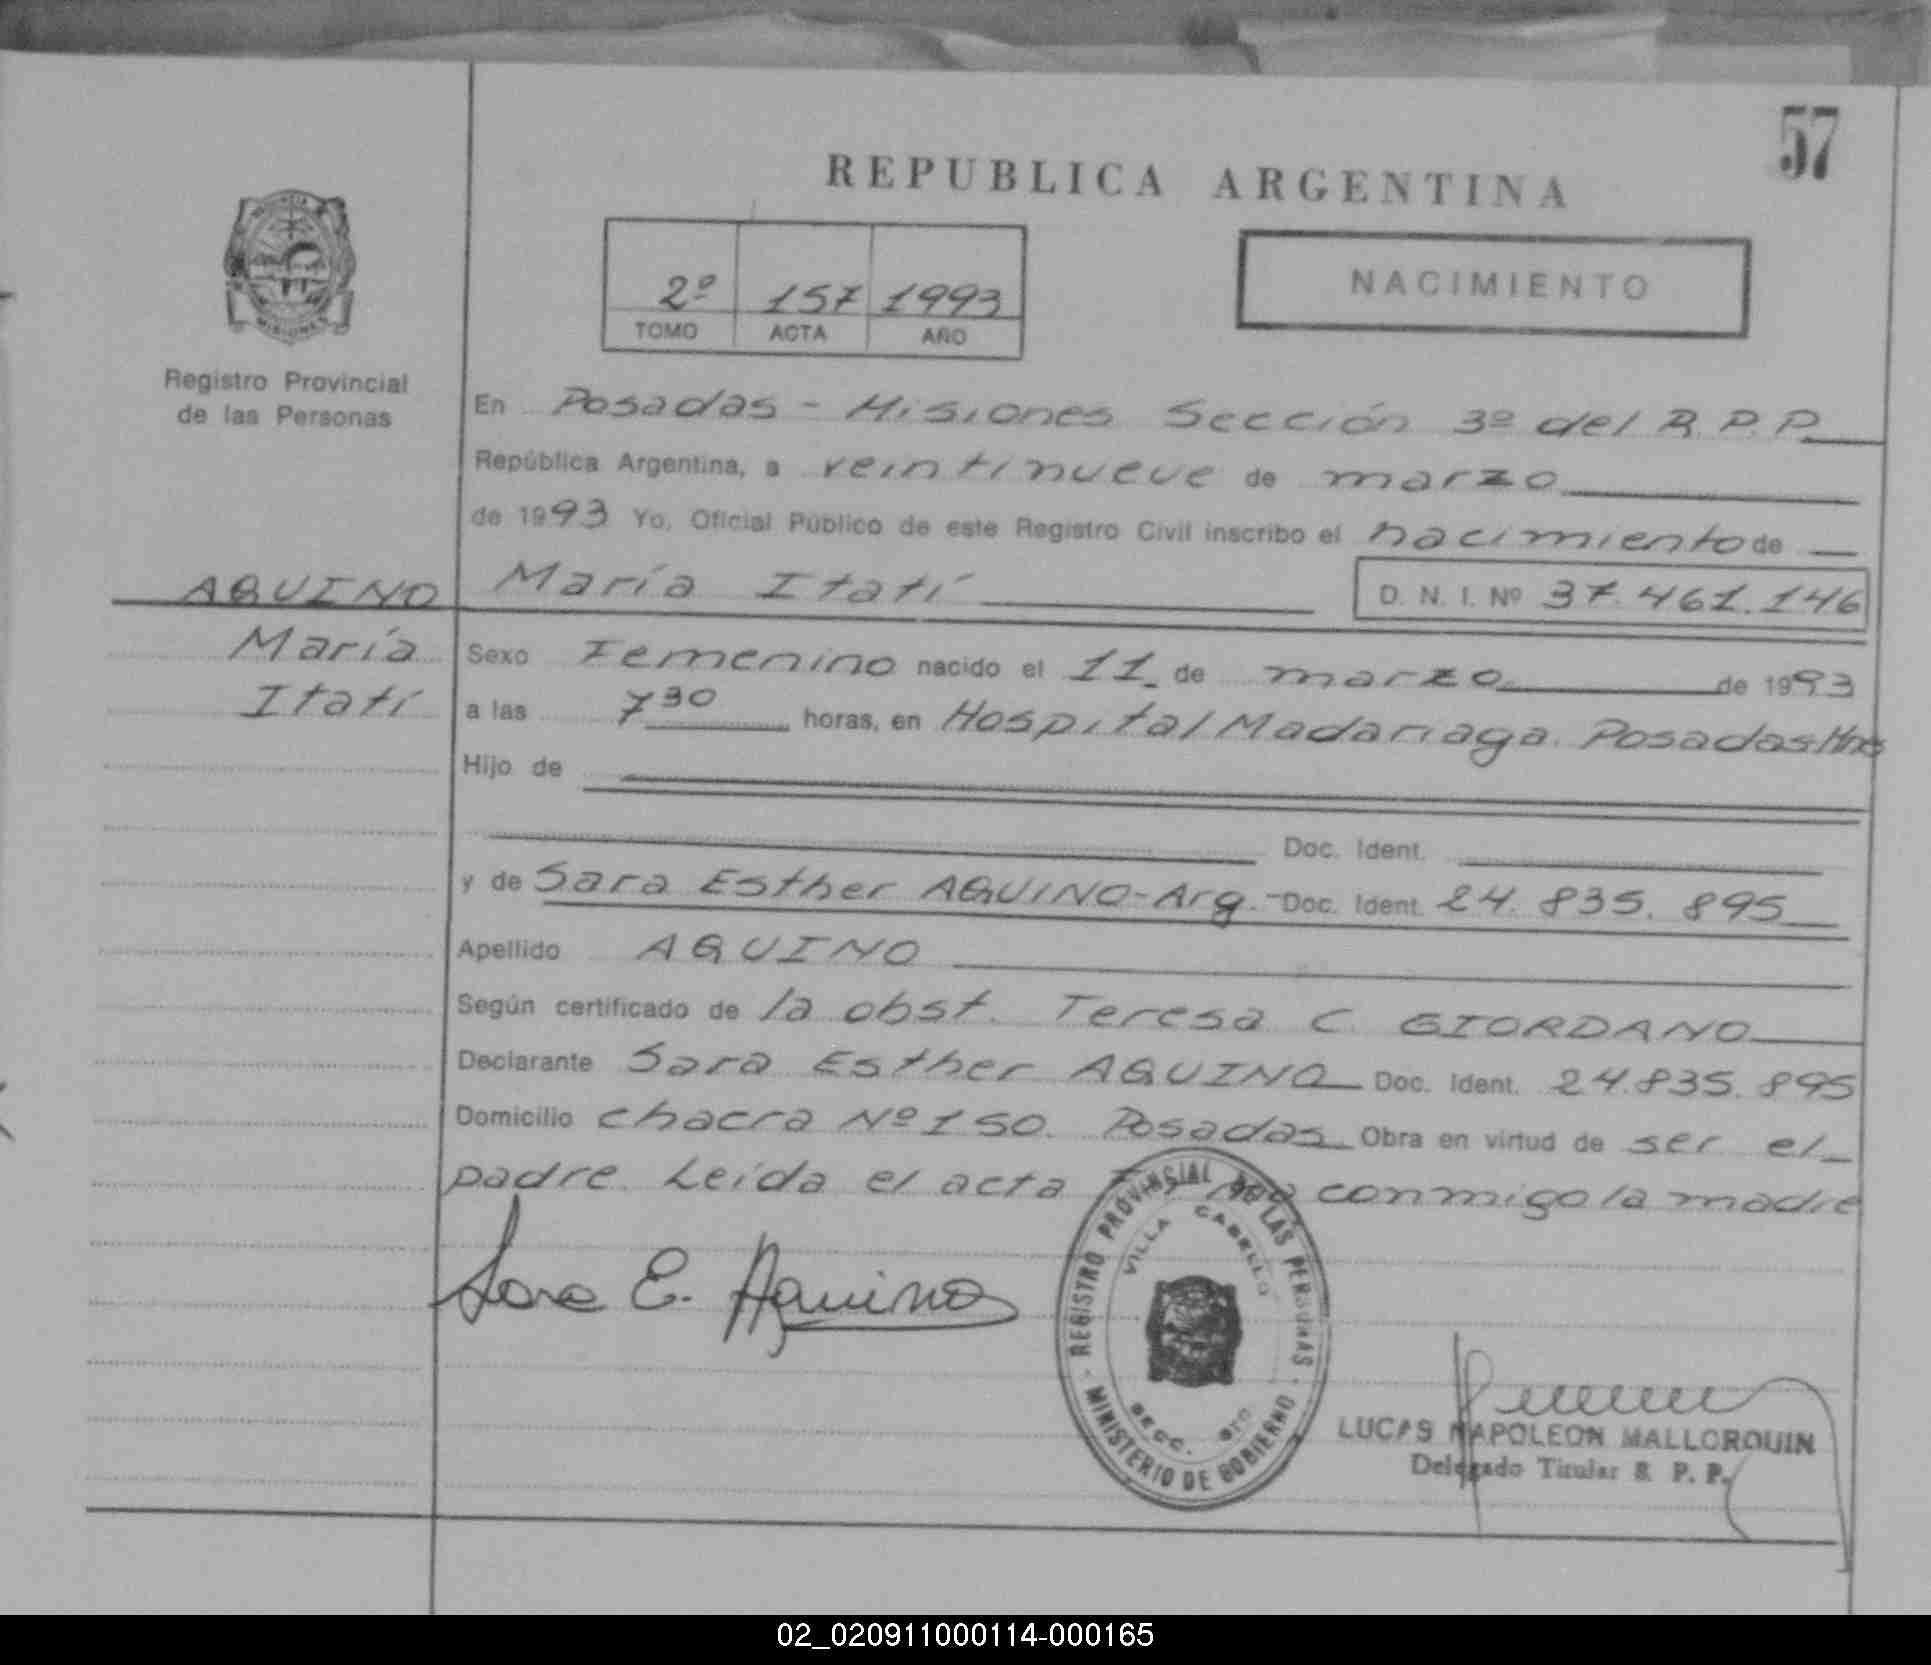 57
REPUBLICA ARGENTINA
2º 157 1993
TOMO ACTA AÑO
NACIMIENTO
MISIONES
Registro Provincial
de las Personas
En Posadas - Misiones Sección 3º del R.P.P.
República Argentina, a veintinueve de marzo
de 1993 Yo, Oficial Público de este Registro Civil inscribo el nacimiento de
AQUINO María Itatí D. N. I. Nº 37.461.146
María Sexo Femenino nacido el 11 de marzo de 1993
Itatí a las 7 30 horas, en Hospital Madariaga. Posadas Mnes
Hijo de
Doc. Ident.
y de Sara Esther AQUINO - Arg. - Doc. Ident. 24.835.895
Apellido AQUINO
Según certificado de la obst. Teresa C. GIORDANO
Declarante Sara Esther AQUINO Doc. Ident. 24.835.895
Domicilio chacra Nº 150. Posadas Obra en virtud de ser el
padre. Leída el acta conmigo la madre
Sara E. Aquino
REGISTRO PROVINSIAL DE LAS PERSONAS
VILLA CABELLO
SECC.
MINISTERIO DE GOBIERNO
LUCAS NAPOLEON MALLORQUIN
Delegado Titular R. P. P.
02_020911000114-000165